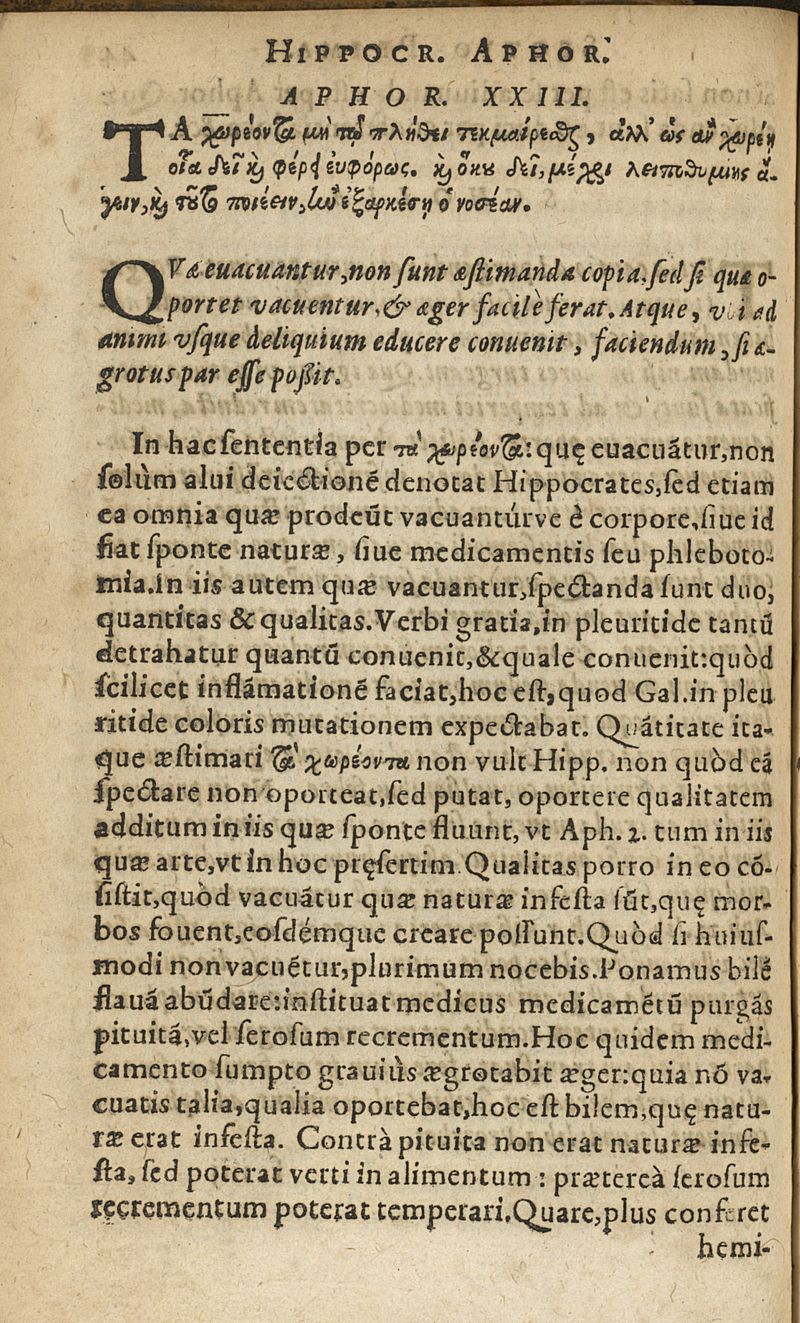 HIPPOCR. APHOR.
APHOR. XXIII.
ΤΑ χωρέοντα μὴ τῷ πλήθει τεκμαίρεσθαι, ἀλλ' ὡς ἂν χωρέῃ
οἷα δεῖ καὶ φέρῃ εὐφόρως. καὶ ὅκου δεῖ, μέχρι λειποθυμίης ἄ-
γειν, καὶ τοῦτο ποιέειν, ἢν ἐξαρκέσῃ ὁ νοσέων.
QVae euacuantur, non sunt æstimanda copia. sed si quæ o-
portet vacuentur, & æger facilè ferat. Atque, vbi ad
animi vsque deliquium educere conuenit, faciendum, si æ-
grotus par esse poſsit.
In hac sententia per τὰ χωρέοντα: quę euacuãtur, non
ſolùm alui deiectionẽ denotat Hippocrates, ſed etiam
ea omnia quæ prodeũt vacuantúrve è corpore, ſiue id
fiat ſponte naturæ, ſiue medicamentis ſeu phleboto-
mia. in iis autem quæ vacuantur, ſpectanda ſunt duo,
quantitas & qualitas. Verbi gratia, in pleuritide tantũ
detrahatur quantũ conuenit, & quale conuenit: quòd
ſcilicet inflãmationẽ faciat, hoc eſt, quod Gal. in pleu
ritide coloris mutationem expectabat. Quãtitate ita-
que æſtimari τὰ χωρέοντα non vult Hipp. non quòd eã
ſpectare non oporteat, ſed putat, oportere qualitatem
additum in iis quæ ſponte fluunt, vt Aph. 2. tum in iis
quæ arte, vt in hoc pręſertim. Qualitas porro in eo cõ-
ſiſtit, quòd vacuãtur quæ naturæ infeſta ſũt, quę mor-
bos fouent, eoſdémque creare poſſunt. Quòd ſi huiuſ-
modi non vacuẽtur, plurimum nocebis. Ponamus bilẽ
flauã abũdare: inſtituat medicus medicamẽtũ purgãs
pituitã, vel ſeroſum recrementum. Hoc quidem medi-
camento ſumpto grauiùs ægrotabit æger: quia nõ va-
cuatis talia, qualia oportebat, hoc eſt bilem, quę natu-
ræ erat infeſta. Contrà pituita non erat naturæ infe-
ſta, ſed poterat verti in alimentum: prætereà ſeroſum
recrementum poterat temperari. Quare, plus conferet
hemi-